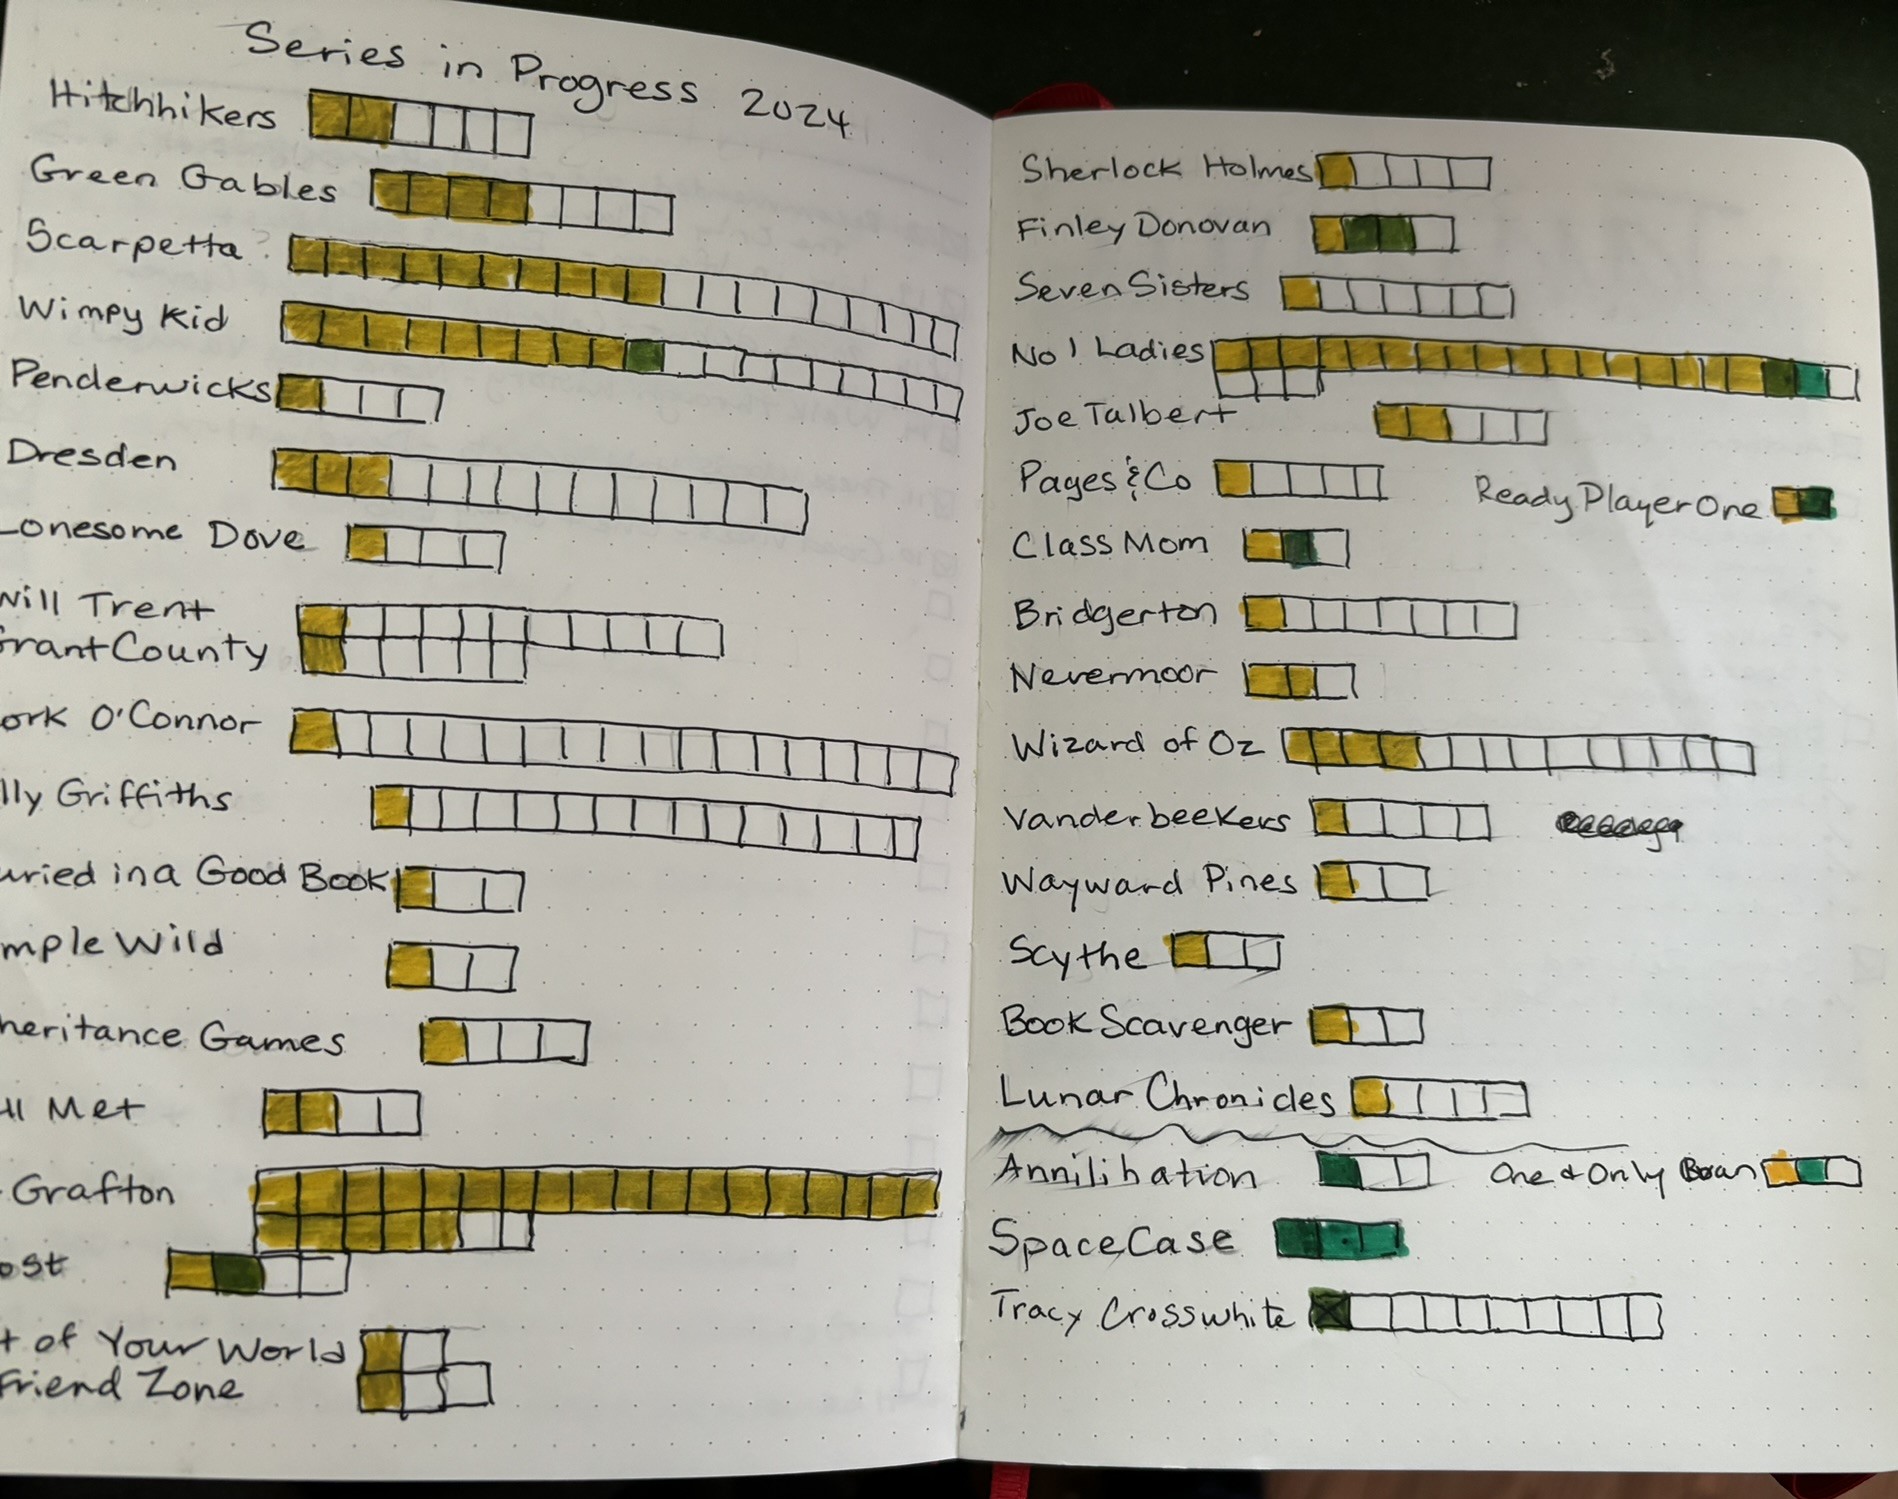 Series in Progress 2024
Hitchhikers
Green Gables
Scarpetta ?
Wimpy Kid
Penderwicks
Dresden
Lonesome Dove
Will Trent
Grant County
ork O'Connor
lly Griffiths
uried in a Good Book
mple Wild
heritance Games
ll Met
Grafton
ost
t of Your World
Friend Zone
Sherlock Holmes
Finley Donovan
Seven Sisters
No 1 Ladies
Joe Talbert
Pages & Co
Ready Player One
Class Mom
Bridgerton
Nevermoor
Wizard of Oz
Vanderbeekers
Wayward Pines
Scythe
Book Scavenger
Lunar Chronicles
Annilihation One & Only
Space Case
Tracy Crosswhite